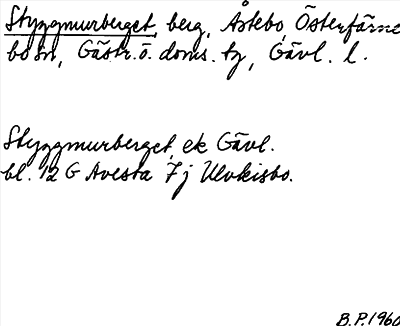 Styggmurberget, berg, Åstebo, Österfärne
bo sn, Gästr. ö. doms. tg, Gävl. l.
Styggmurberget ek Gävl.
bl. 12 G Avesta 7j Ulvkisbo.
B.P. 1960